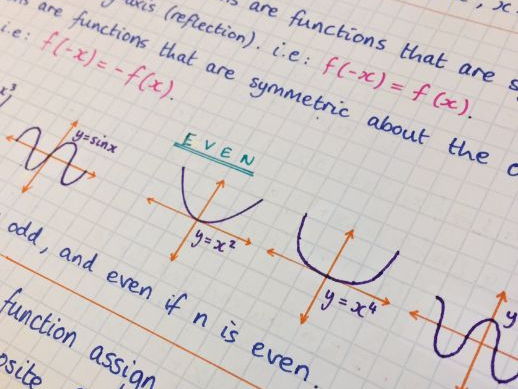 axis (reflection). i.e: f(-x) = f(x).
are functions that are
i.e: f(-x) = -f(x).
are functions that are symmetric about the
y=sinx
EVEN
y=x²
y=x⁴
y
odd, and even if n is even.
function assign